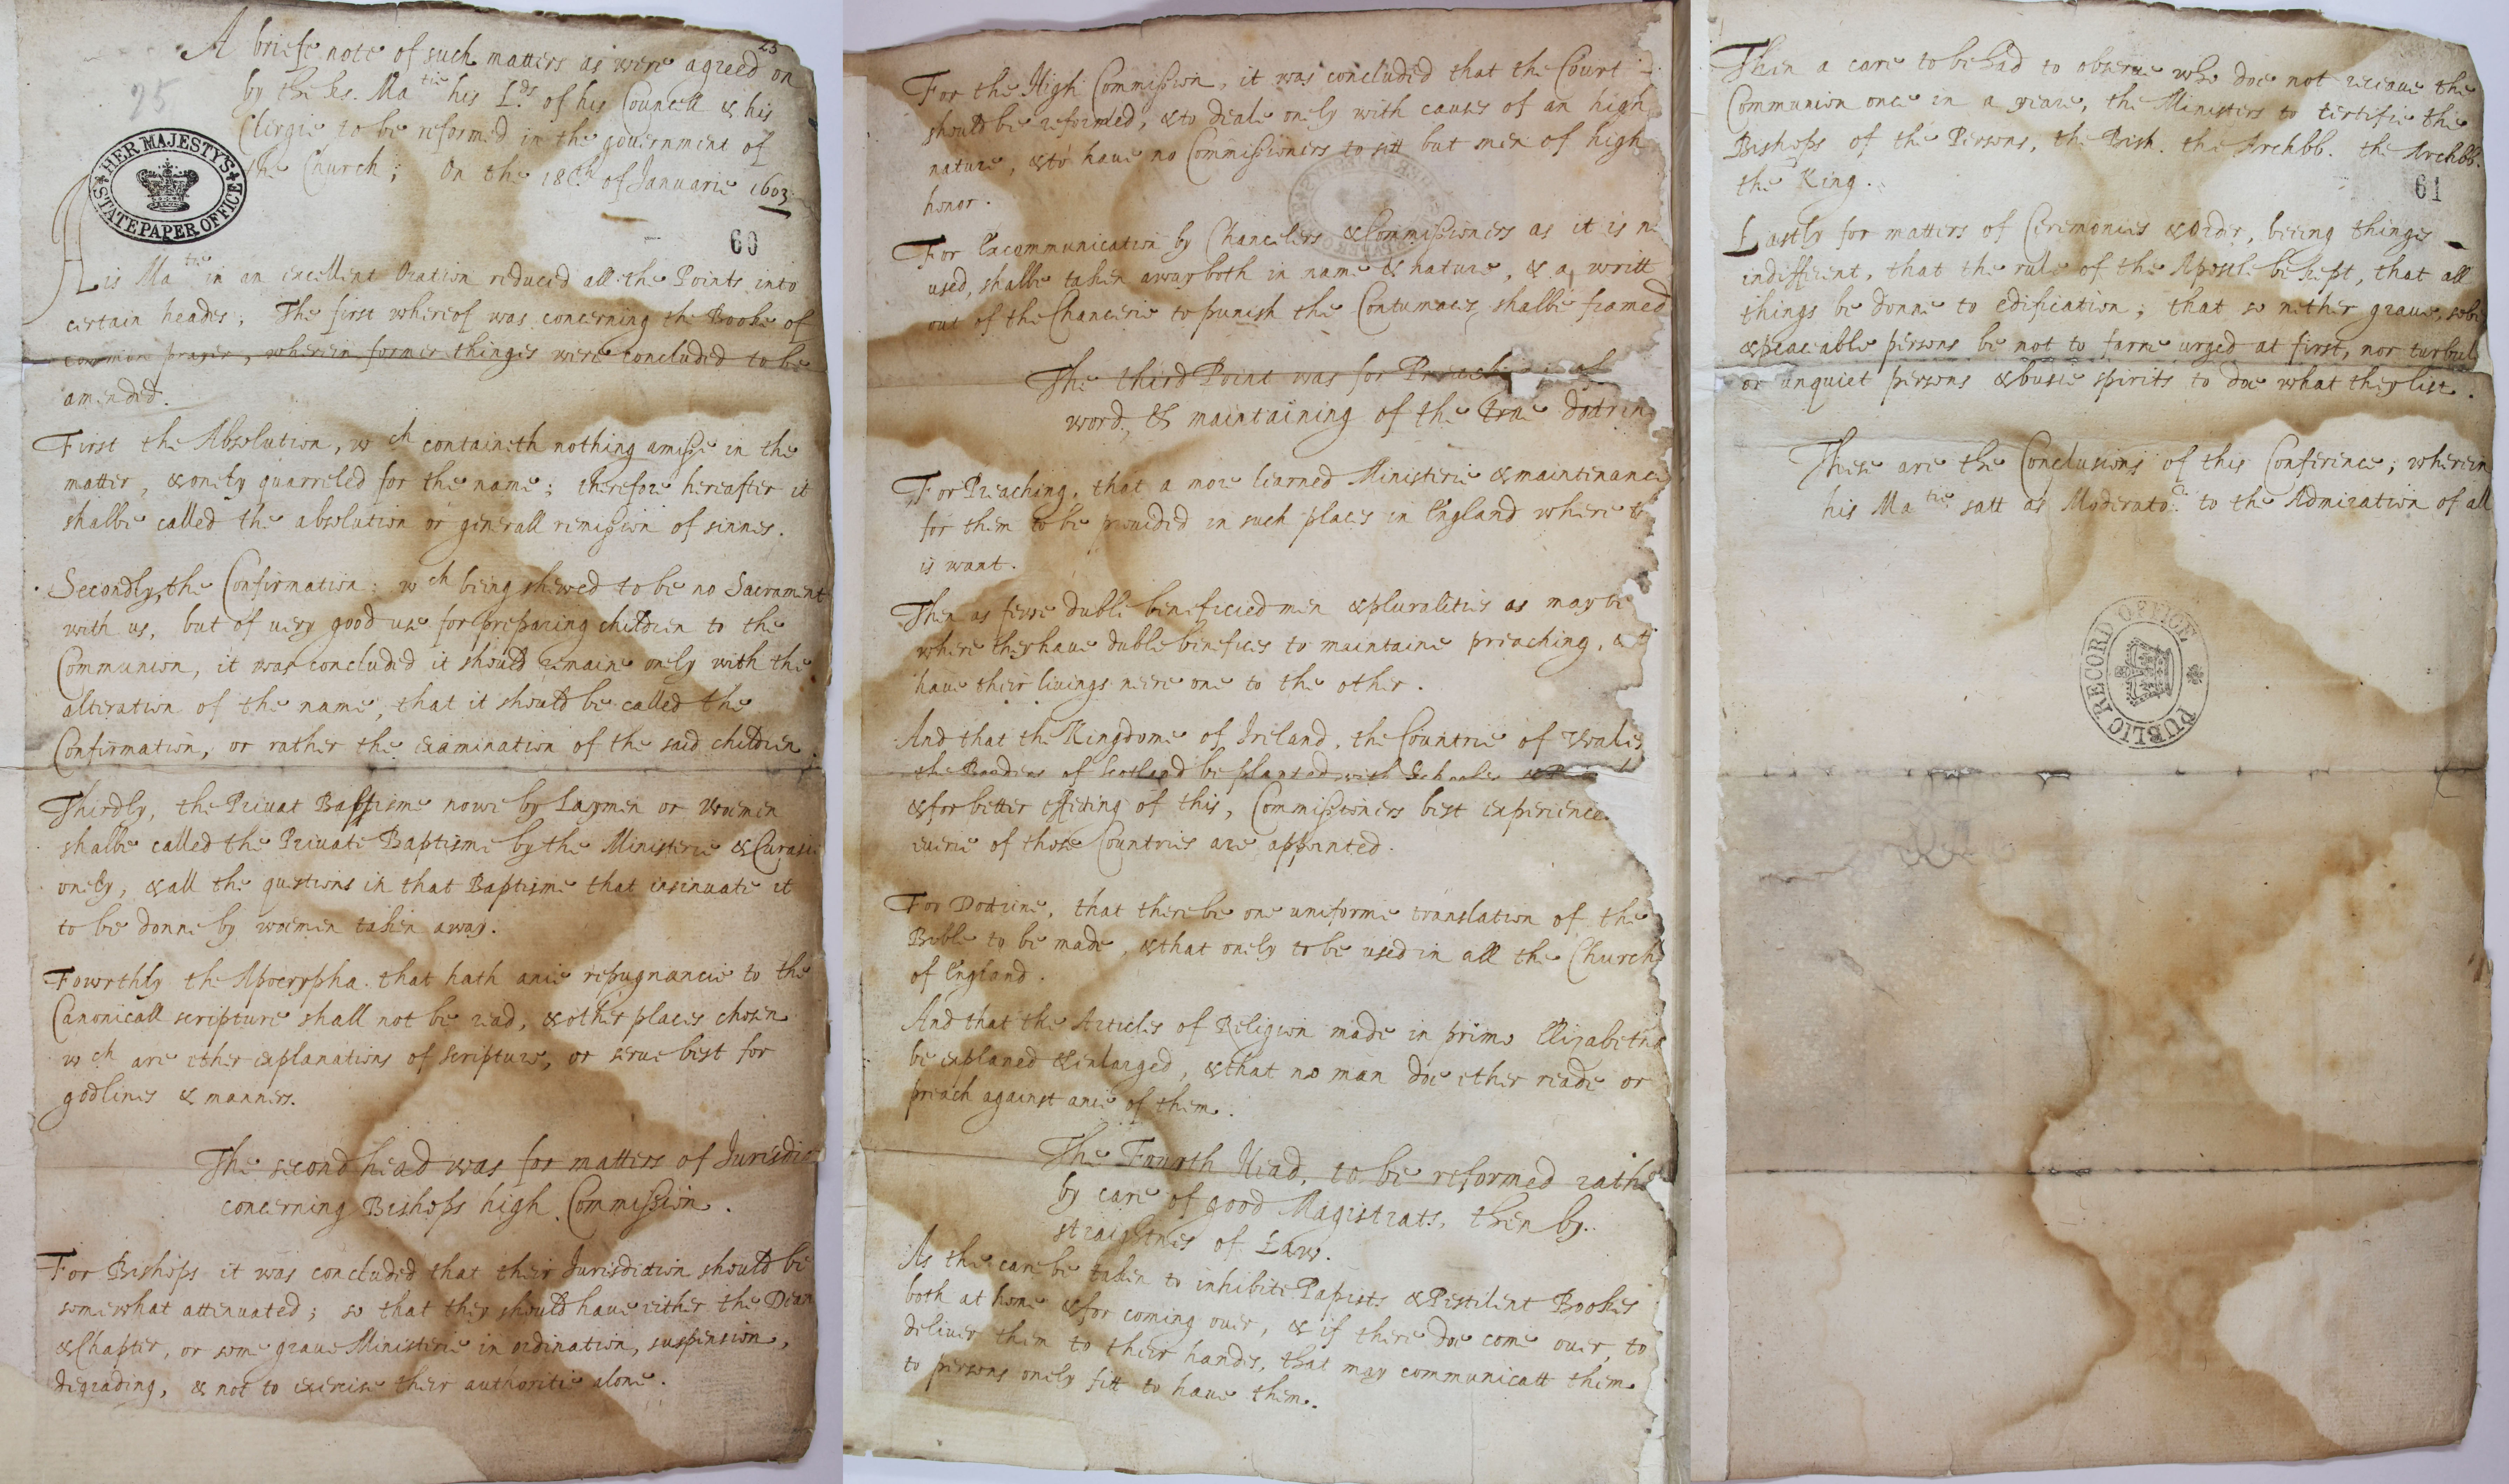 25
A briefe note of such matters as were agreed on
25
by the ks. Matie his Lds of his Councell & his
Clergie to be reformed in the government of
the Church; On the 18th of Januarie 1603
HER MAJESTY'S
STATE PAPER OFFICE
60
His Matie in an excellent Oration reduced all the Points into
certain heades; The first whereof was concerning the Booke of
common prayer, wherein former thinges were concluded to be
amended.
First the Absolution, wch containeth nothing amisse in the
matter, & onely quarreled for the name; therefore hereafter it
shalbe called the absolution or generall remission of sinnes.
Secondly, the Confirmation: wch being shewed to be no Sacrament
with us, but of uery good use for preparing children to the
Communion, it was concluded it should remaine onely with the
alteration of the name, that it should be called the
Confirmation, or rather the examination of the said children.
Thirdly, the Privat Baptisme nowe by Laymen or Woemen
shalbe called the Private Baptisme by the Ministerie & Curasie
onely, & all the questions in that Baptisme that insinuate it
to be donne by woemen taken away.
Fowrthly the Apocrypha that hath anie repugnancie to the
Canonicall scripture shall not be read, & other places chosen
wch are ether explanations of Scripture, or serue best for
godlines & manners.
The second head was for matters of Jurisdic
concerning Bishops high Commission.
For Bishops it was concluded that their Jurisdiction should be
somewhat attenuated; so that they should haue either the Dean
& Chapter, or some graue Ministerie in ordination, suspension,
degrading, & not to exercise their authoritie alone.
For the High Commission, it was concluded that the Court
should be reformed, & to deale onely with causes of an high
nature, & to haue no Commissioners to sitt but men of high
honor.
For Excommunication by Chancelers & Commissioners as it is n
used, shalbe taken away both in name & nature, & a writt
out of the Chancerie to punish the Contumacy shalbe framed
The third Point was for Preach of
word, & maintaining of the true doctrin
For Preaching, that a more learned Ministerie & maintenance
for them to be prouided in such places in England where th
is want.
Then as fewe duble beneficied men & pluralities as may be
where they haue duble benefices to maintaine preaching, & t
have their livings neere one to the other.
And that the Kingdome of Ireland, the Countrie of Wales
the Borders of Scotland be planted with Schooles
& for better effecting of this, Commissioners best experience
euerie of those Countries are appointed.
For Doctrine, that there be one uniforme translation of the
Bible to be made, & that onely to be used in all the Church
of England.
And that the Articles of Religion made in primo Elizabetha
be explaned & inlarged, & that no man doe ether reade or
preach against anie of them.
The Fourth Head, to be reformed rathe
by care of good Magistrats, then by
straightnes of Law.
As the care be taken to inhibite Papists & Pestilent Bookes
both at home & for coming ouer, & if there doe come ouer, to
deliver them to their handes, that may communicatt them
to persons onely fitt to haue them.
Then a care to be had to obserue who doe not receaue the
Communion once in a yeare, the Ministers to certifie the
Bishops of the Persons, the Bish. the Archbb. the Archbb.
the King.
61
Lastly for matters of Ceremonies & order, beeing things
indifferent, that the rule of the Apostle be kept, that all
things be donne to edification; that so nether graue, sobe
& peaceable persons be not to farre urged at first, nor turbul
or unquiet persons & busie spirits to doe what they list.
These are the Conclusions of this Conference; wherein
his Matie satt as Moderator to the Admiration of all
PUBLIC RECORD OFFICE